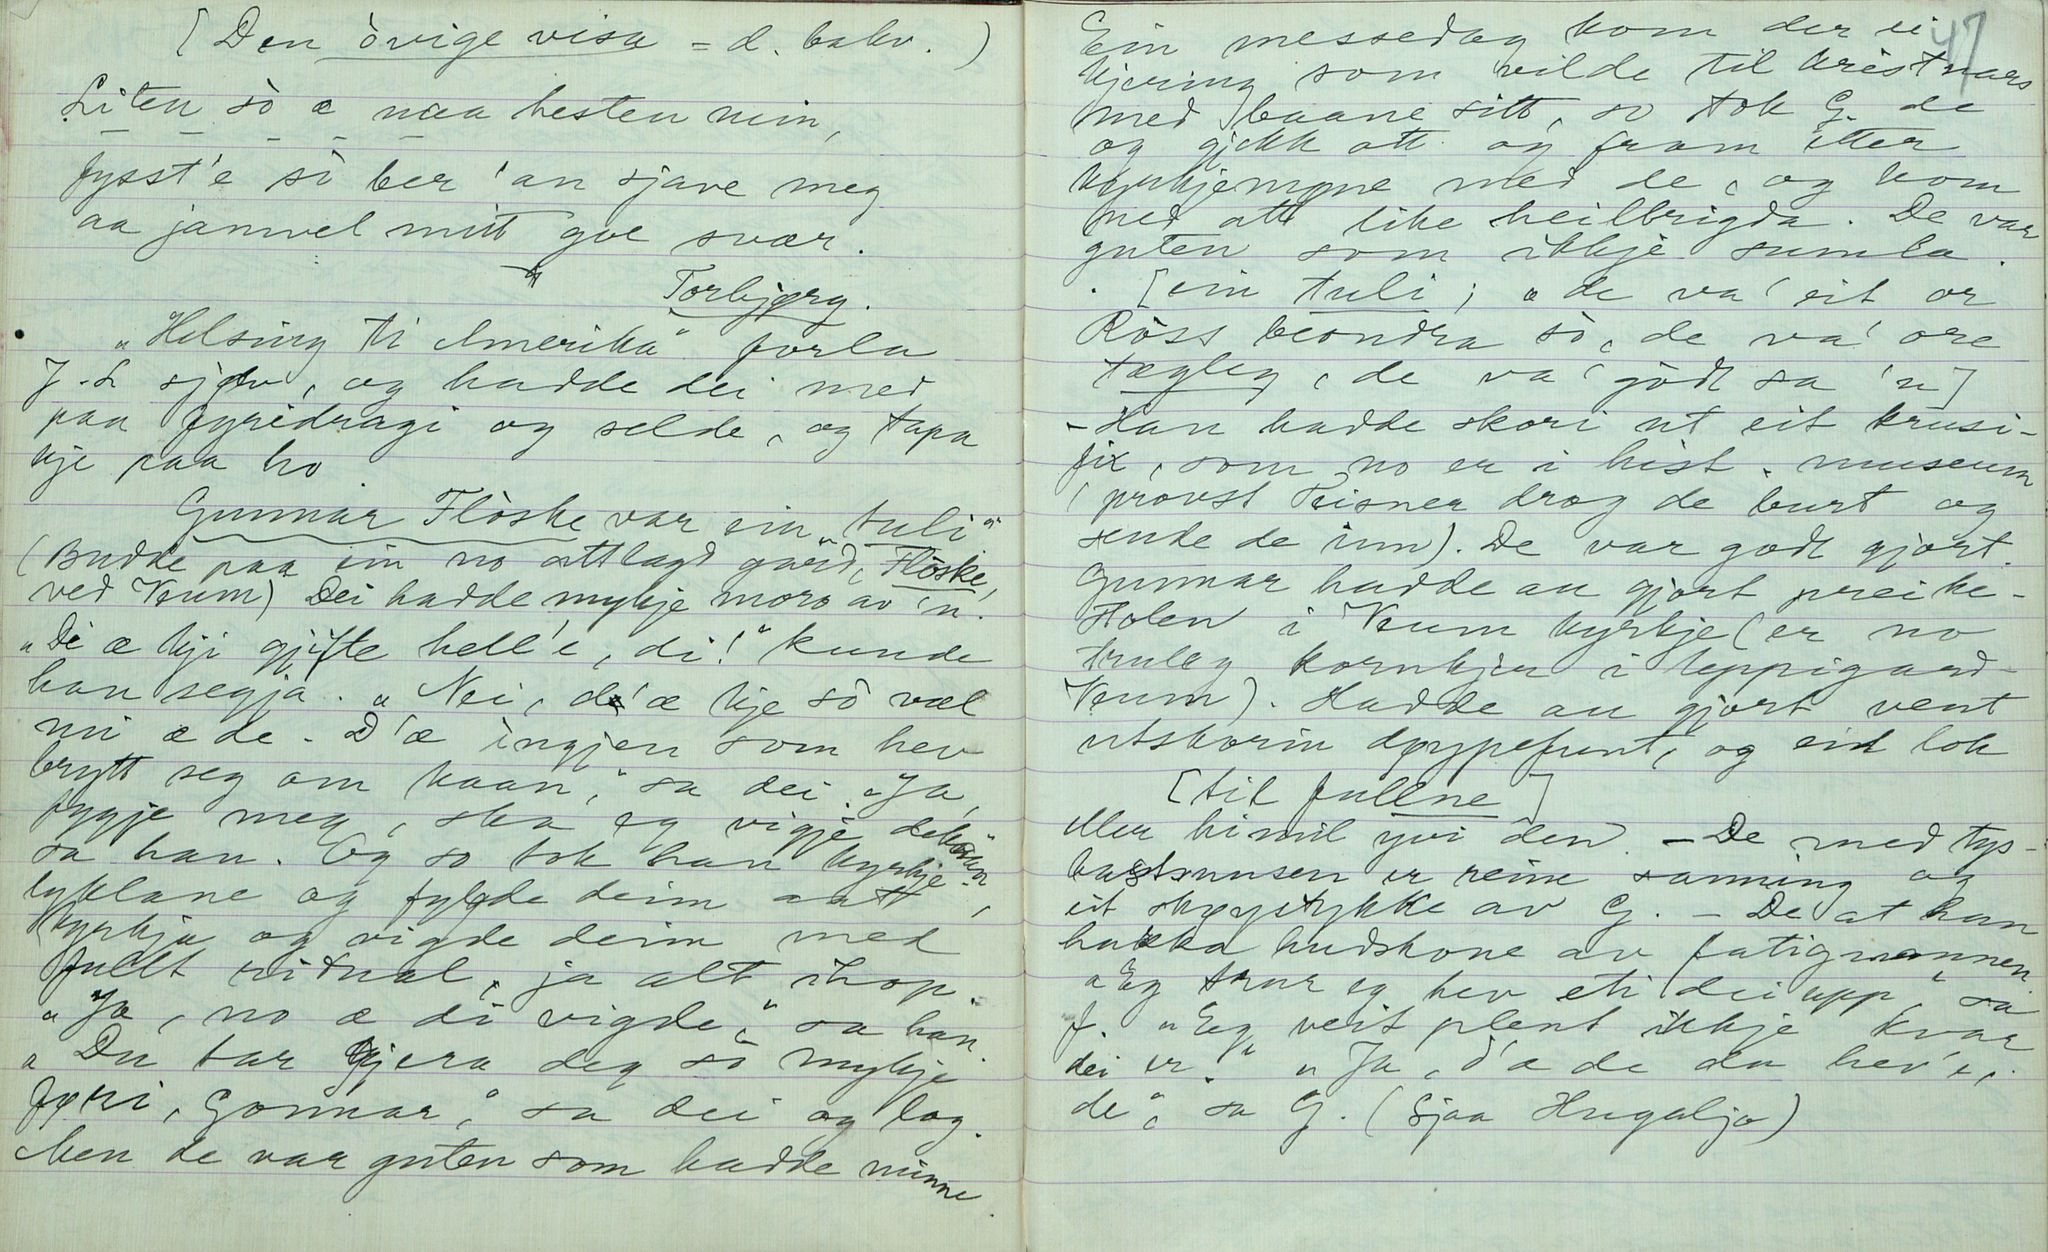 [Den òvige visa = d. bakv. )
Liten sò æ naa hesten min,
– – – – –
fysst'e sò ber 'an sjave meg
aa jamvel mitt goe svær.
Torbjørg.
„Helsing ti Amerika" forla
J.L. sjølv, og hadde dei med
paa fyridragi og selde, og tapa
kje paa ho
Gunnar Flòske var ein „tuli"
(Budde paa ein no attlagd gard, Flòske,
ved Veum) Dei hadde mykje moro av 'n.
„Di æ kji gjifte hell'e, di!" kunde
han segja. „Nei, d'æ kje sò væl
mi æ de – D'æ ingjen som hev
brytt seg om kaan," sa dei. „Ja,
fyggje meg, ska eg vigje dekan"
sa han. Og so tok han kyrkje-
lyklane og fylgde deim att i
kyrkja og vigde deim med
fullt ritual, ja alt ihop.
„Ja, no æ di vigde," sa han.
„Du tar gjera deg sò mykje
fyri, Gonnar," sa dei og log.
Men de var guten som hadde minne.
47
Ein messedag kom der ei
kjering som vilde til kristnars
med baane sitt, so tok G. de
og gjekk att og fram etter
kyrkjemogne med de, og kom
med att like heilbrigda. De var
guten som ikkje sumla.
[ein tuli; æ de va' eit or
Ròss beondra sò, de va' ore
tægleg, de va' gòdt sa 'n]
– Han hadde skori ut eit krusi-
fix, som no er i hist. museum
(provst Teisner drog de burt og
sende de inn). De var godt gjort.
Gunnar hadde au gjort preike-
stolen i Veum kyrkje (er no
truleg kornkjer i Uppigard-
Veum). Hadde au gjort vent
utskorin døypefunt, og eit lok
[til fullne]
eller himil yvi den. – De med tys-
bastsnusen er reine sanning og
eit skøyestykke av G. – De at han
hakka hudskone av fatigmannen.
„Eg trur eg hev eti dei upp," sa
f. „Eg veit plent ikkje kvar
dei er." „Ja, d'æ de du hev 'e,
de", sa G. (Sjaa Hugaljo)